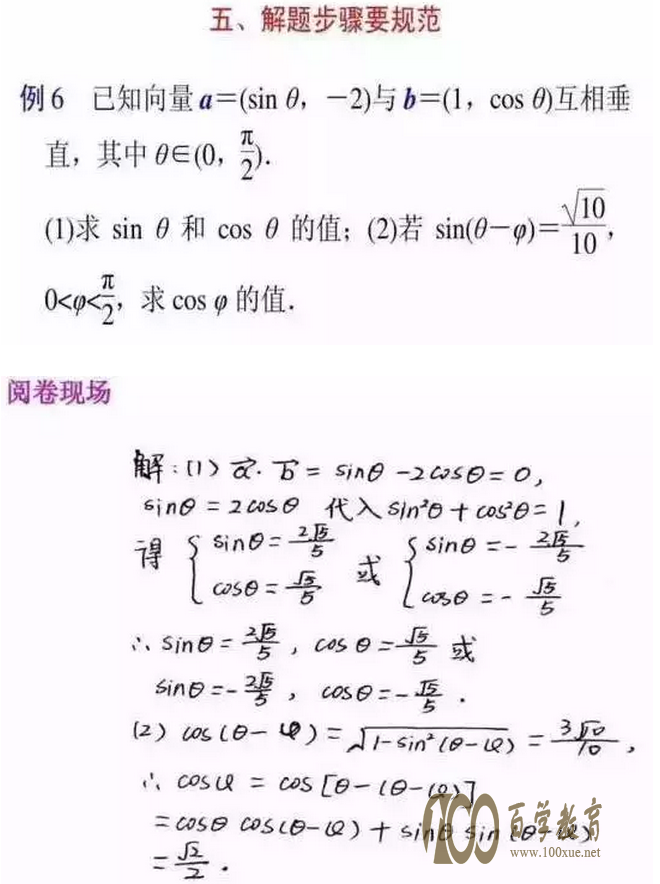 五、解题步骤要规范
例6 已知向量a=(sin θ,-2)与b=(1,cos θ)互相垂
直,其中θ∈(0,π/2).
(1)求 sin θ 和 cos θ 的值;(2)若 sin(θ-φ)=√10/10,
0<φ<π/2,求cos φ 的值.
阅卷现场
解:(1) a⃗·b⃗ = sinθ -2cosθ = 0,
sinθ = 2cosθ 代入 sin²θ + cos²θ = 1,
得 { sinθ = 2√5/5 或 { sinθ = - 2√5/5
cosθ = √5/5 cosθ = - √5/5
∴ sinθ = 2√5/5 , cosθ = √5/5 或
sinθ = - 2√5/5 , cosθ = - √5/5 .
(2) cos(θ-φ) = √(1-sin²(θ-φ)) = 3√10/10 ,
∴ cosφ = cos[θ-(θ-φ)]
= cosθ cos(θ-φ) + sinθ sin(θ-φ)
= √2/2 .
100 百学教育
www.100xue.net